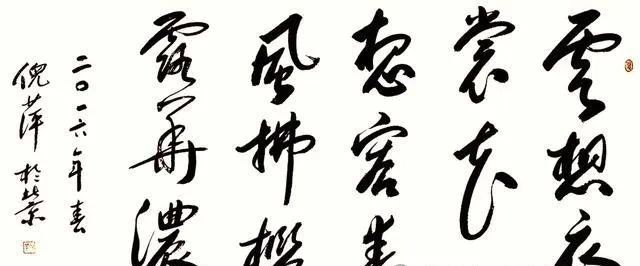 雲想衣
裳花
想容春
風拂檻
露華濃
二〇一六年春
倪萍於北京